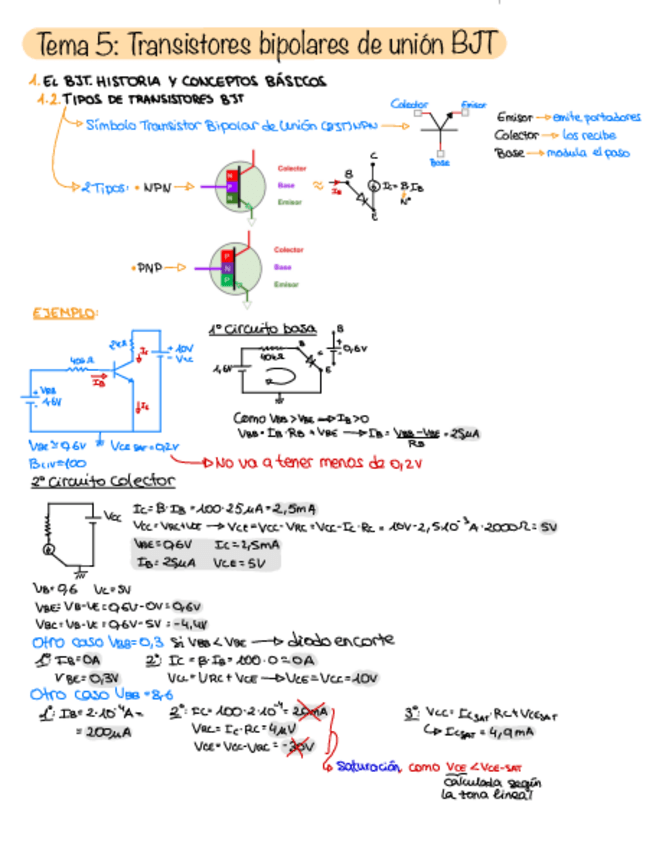 Tema 5: Transistores bipolares de unión BJT
1. EL BJT. HISTORIA Y CONCEPTOS BÁSICOS
1.2. TIPOS DE TRANSISTORES BJT
Símbolo Transistor Bipolar de Unión (BJT) NPN
Colector
Emisor
Base
Emisor → emite portadores
Colector → los recibe
Base → modula el paso
2 Tipos: • NPN →
N
P
N
Colector
Base
Emisor
≈
B
C
E
IB
IC = B·IB
• PNP →
P
N
P
Colector
Base
Emisor
EJEMPLO:
1º Circuito base
2kΩ
40kΩ
IC
10V
VCC
IB
VBB
4,6V
VBE ≃ 0,6V
VCE SAT = 0,2V
40kΩ
1,6V
B
E
0,6V
Como VBB > VBE → IB > 0
VBB = IB·RB + VBE → IB = VBB - VBE / RB = 25μA
No va a tener menos de 0,2V
2º Circuito Colector
VCC
IC = B·IB = 100·25μA = 2,5mA
VCC = VRC + VCE → VCE = VCC - VRC = VCC - IC·RC = 10V - 2,5·10⁻³A·2000Ω = 5V
VBE = 0,6V IC = 2,5mA
IB = 25μA VCE = 5V
VB = 0,6 VC = 5V
VBE = VB - VE = 0,6V - 0V = 0,6V
VBC = VB - VC = 0,6V - 5V = -4,4V
Otro caso VBB = 0,3 Si VBB < VBE → diodo en corte
1º: IB = 0A 2º: IC = B·IB = 100·0 = 0A
VBE = 0,3V VCC = VRC + VCE → VCE = VCC = 10V
Otro caso VBB = 8,6
1º: IB = 2·10⁻⁴A = 2º: IC = 100·2·10⁻⁴ = 20mA 3º: VCC = ICSAT·RC + VCESAT
= 200μA VRC = IC·RC = 4μV ICSAT = 4,9mA
VCE = VCC - VRC = -30V
Saturación como VCE < VCE-SAT
calculada según
la zona lineal